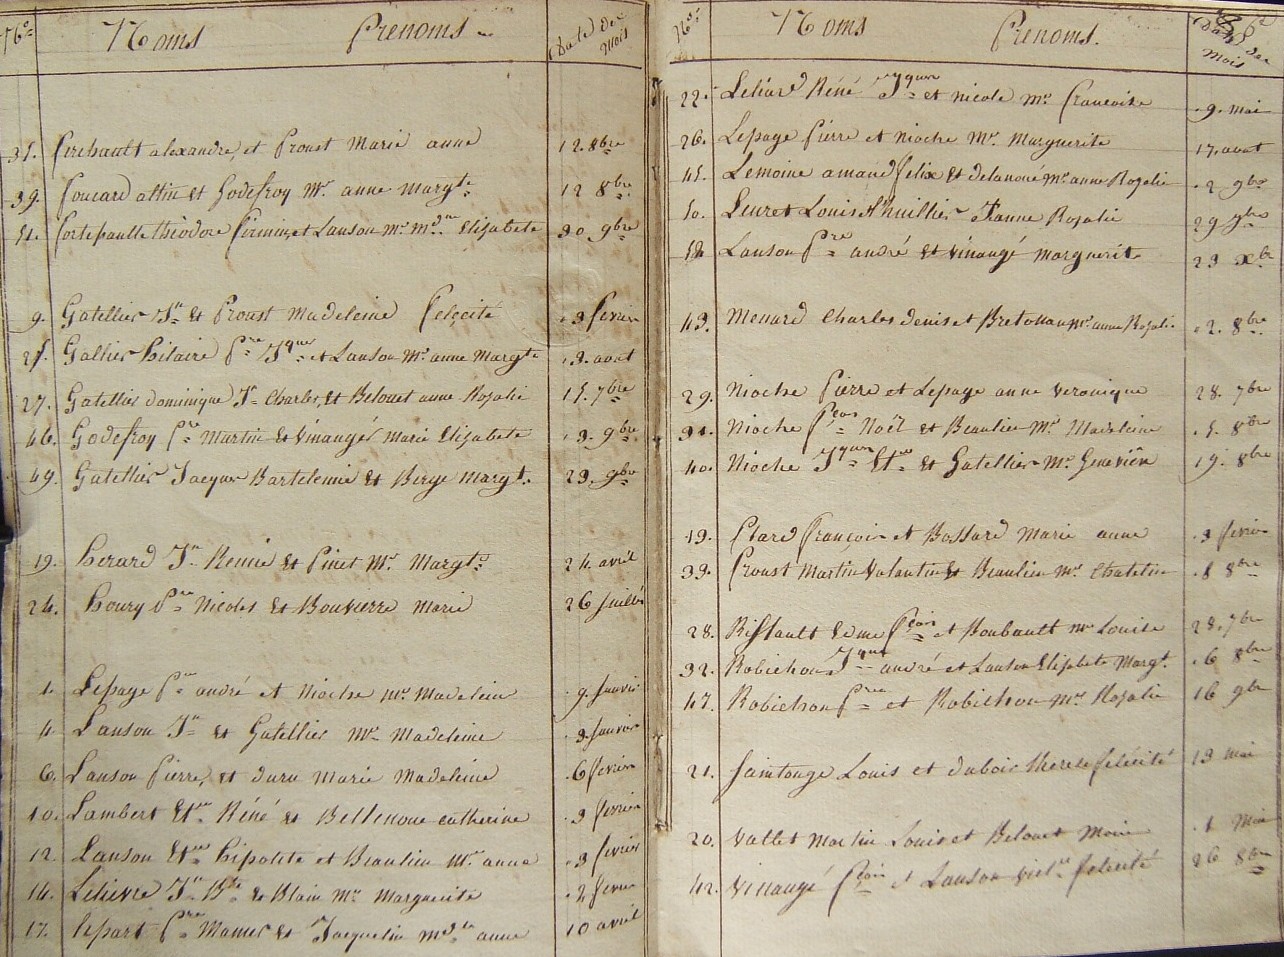 Nos Noms Prénoms Date des mois
35. firebault alexandre, et Proust Marie anne 12. 8bre
39. foucard et Godefroy Me. anne Margte 12 8bre
51. Lanson Me. Elizabete 30 9bre
9. Gatellier Jn et Proust Madeleine felecité 3 fevrier
25. Gallier hilaire Pre Jques et Lanson Me. anne Margte 3. aout
27. Gatellier dominique Jn Charles, et Belouet anne Rosalie 15. 7bre
46. Godefroy Pre Martin et Vinangé Marie Elizabete 3. 9bre
49. Gatellier Jacques Bartelemie et Berge Margte 23. 9bre
19. herard Jn Remie et Pinet Me. Margte 24 avril
24. houry Pre Nicolas et Bouvierre Marie 26 juillet
1. Lepage Pre andré et Nioche Me. Madelein 9. janvier
4 Lanson Jn et Gatellier Me. Madeleine 3. janvier
6. Lanson Pierre, et duru Marie Madeleine 6 fevrier
10. Lambert Etne Réné et Bellenoue catherine 3 fevrier
12. Lanson Etne hipolite et Beaulieu Me. anne 3 fevrier
14. Lelievre Jn Bte et Blain Me. Marguerite 2 fevrier
17. lepart Pre Mamer et Jacquelin Mdne anne 10 avril
Nos Noms Prénoms. Date des mois
22. Leliard Réné Jques et nicole Me. francoise 9. mai
26. Lepage Pierre et Nioche Me. Marguerite 17. aout
45. Lemoine amand felix et delanoue Me. anne Rosalie 2 9bre
50. Leuret Louis Lhuillier Janne Rosalie 29 9bre
Lanson Pre andré et Vinangé Marguerite 23 Xbre
43. Menard Charles denis et Me. anne Rosalie 2. 8bre
29. Nioche Pierre et Lepage anne Veronique 28. 7bre
Nioche fçois Noël et Beaulieu Me. Madeleine 5. 8bre
40. Nioche Jques Etne et Gatellier Me. Geneviève 19. 8bre
13. Piard françois et Bossard Marie anne 3 fevrier
33. Proust Martin Valantin et Beaulieu Me. 8 8bre
28. Riffault fçois et Boubault Me Louise 28. 7bre
32. Robichon Jques andré et Lanson Elizabete Margte. 6 8bre
47. Robichon Pre et Robichon Me. Rosalie 16 9bre
21. Saintonge Louis et dubois therese felicité 13 mai
20. Vallet Martin Louis et Belouet Marie 1 Mai
42. Vinangé fçois et Lanson felicité 26 8bre